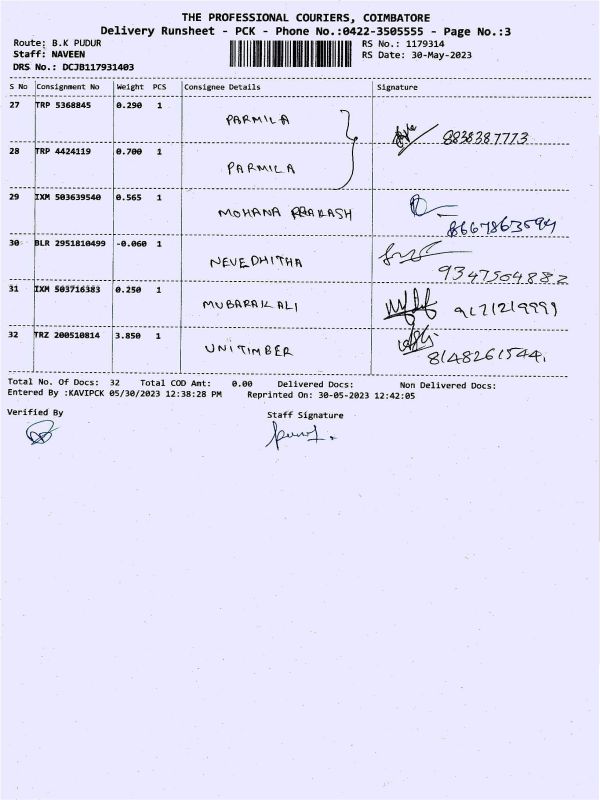 THE PROFESSIONAL COURIERS, COIMBATORE
Delivery Runsheet - PCK - Phone No.:0422-3505555 - Page No.:3
Route: B.K PUDUR
RS No.: 1179314
Staff: NAVEEN
RS Date: 30-May-2023
DRS No.: DCJB117931403
S No Consignment No Weight PCS Consignee Details Signature
27 TRP 5368845 0.290 1 PARMILA 8838387773
28 TRP 4424119 0.700 1 PARMILA
29 IXM 503639540 0.565 1 MOHANA PRAKASH
30 BLR 2951810499 -0.060 1 NEVEDHITHA 9347504882
31 IXM 503716383 0.250 1 MUBARAK ALI 9171219999
32 TRZ 200510814 3.850 1 UNITIMBER 8148261544
Total No. Of Docs: 32 Total COD Amt: 0.00 Delivered Docs: Non Delivered Docs:
Entered By :KAVIPCK 05/30/2023 12:38:28 PM Reprinted On: 30-05-2023 12:42:05
Verified By
Staff Signature